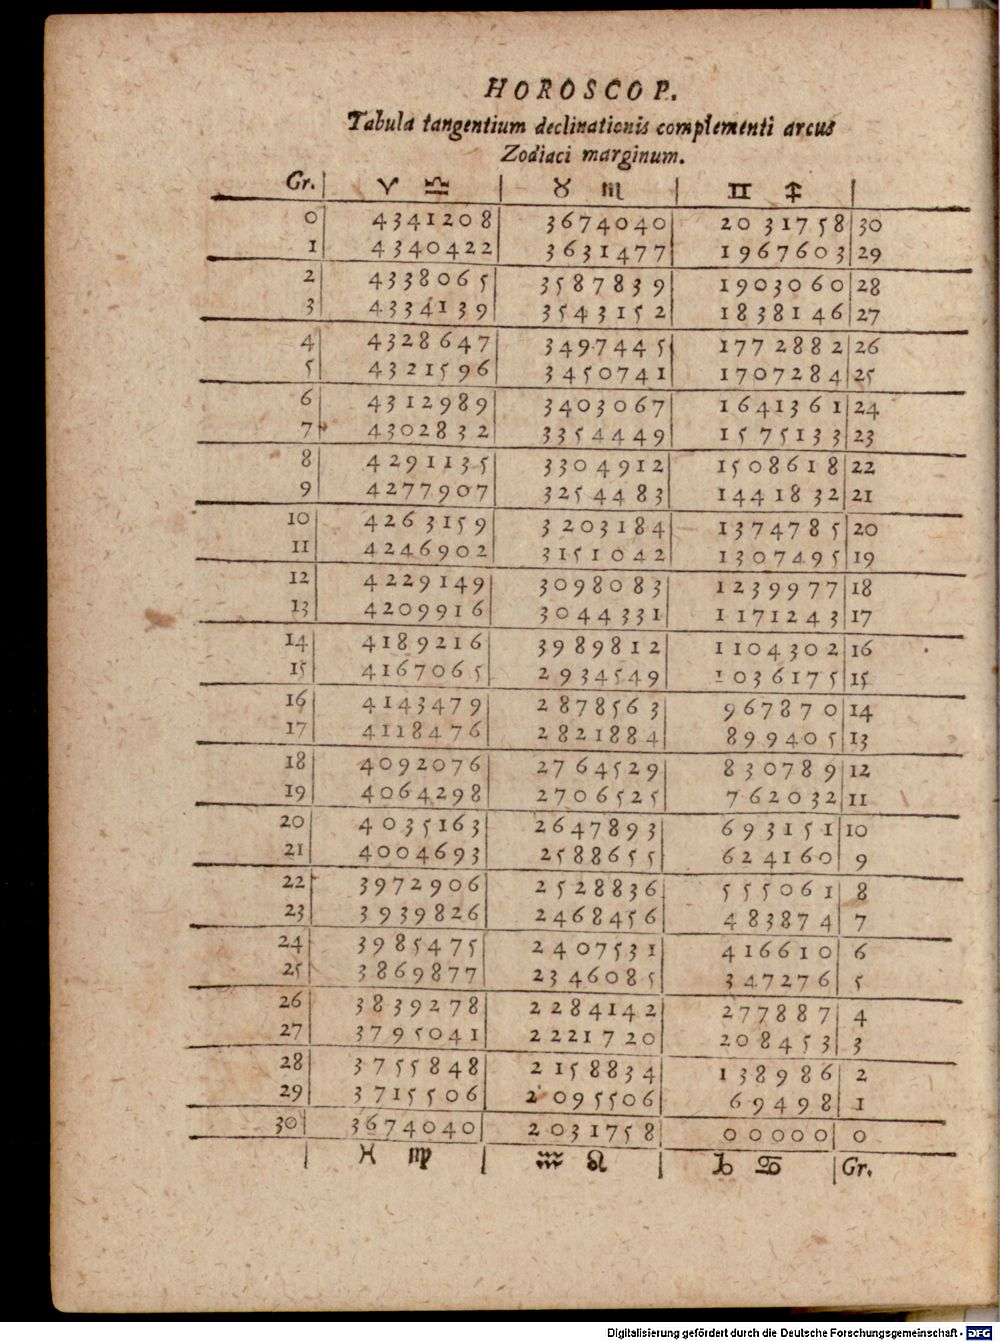 HOROSCOP.
Tabula tangentium declinationis complementi arcus
Zodiaci marginum.
Gr. ♈ ♎ ♉ ♏ ♊ ♐
0 4341208 3674040 2031758 30
1 4340422 3631477 1967603 29
2 4338065 3587839 1903060 28
3 4334139 3543152 1838146 27
4 4328647 3497445 1772882 26
5 4321596 3450741 1707284 25
6 4312989 3403067 1641361 24
7 4302832 3354449 1575133 23
8 4291135 3304912 1508618 22
9 4277907 3254483 1441832 21
10 4263159 3203184 1374785 20
11 4246902 3151042 1307495 19
12 4229149 3098083 1239977 18
13 4209916 3044331 1171243 17
14 4189216 3989812 1104302 16
15 4167065 2934549 1036175 15
16 4143479 2878563 967870 14
17 4118476 2821884 899405 13
18 4092076 2764529 830789 12
19 4064298 2706525 762032 11
20 4035163 2647893 693151 10
21 4004693 2588655 624160 9
22 3972906 2528836 555061 8
23 3939826 2468456 483874 7
24 3985475 2407531 416610 6
25 3869877 2346085 347276 5
26 3839278 2284142 277887 4
27 3795041 2221720 208453 3
28 3755848 2158834 138986 2
29 3715506 2095506 69498 1
30 3674040 2031758 00000 0
♓ ♍ ♒ ♌ ♑ ♋ Gr.
Digitalisierung gefördert durch die Deutsche Forschungsgemeinschaft - DFG